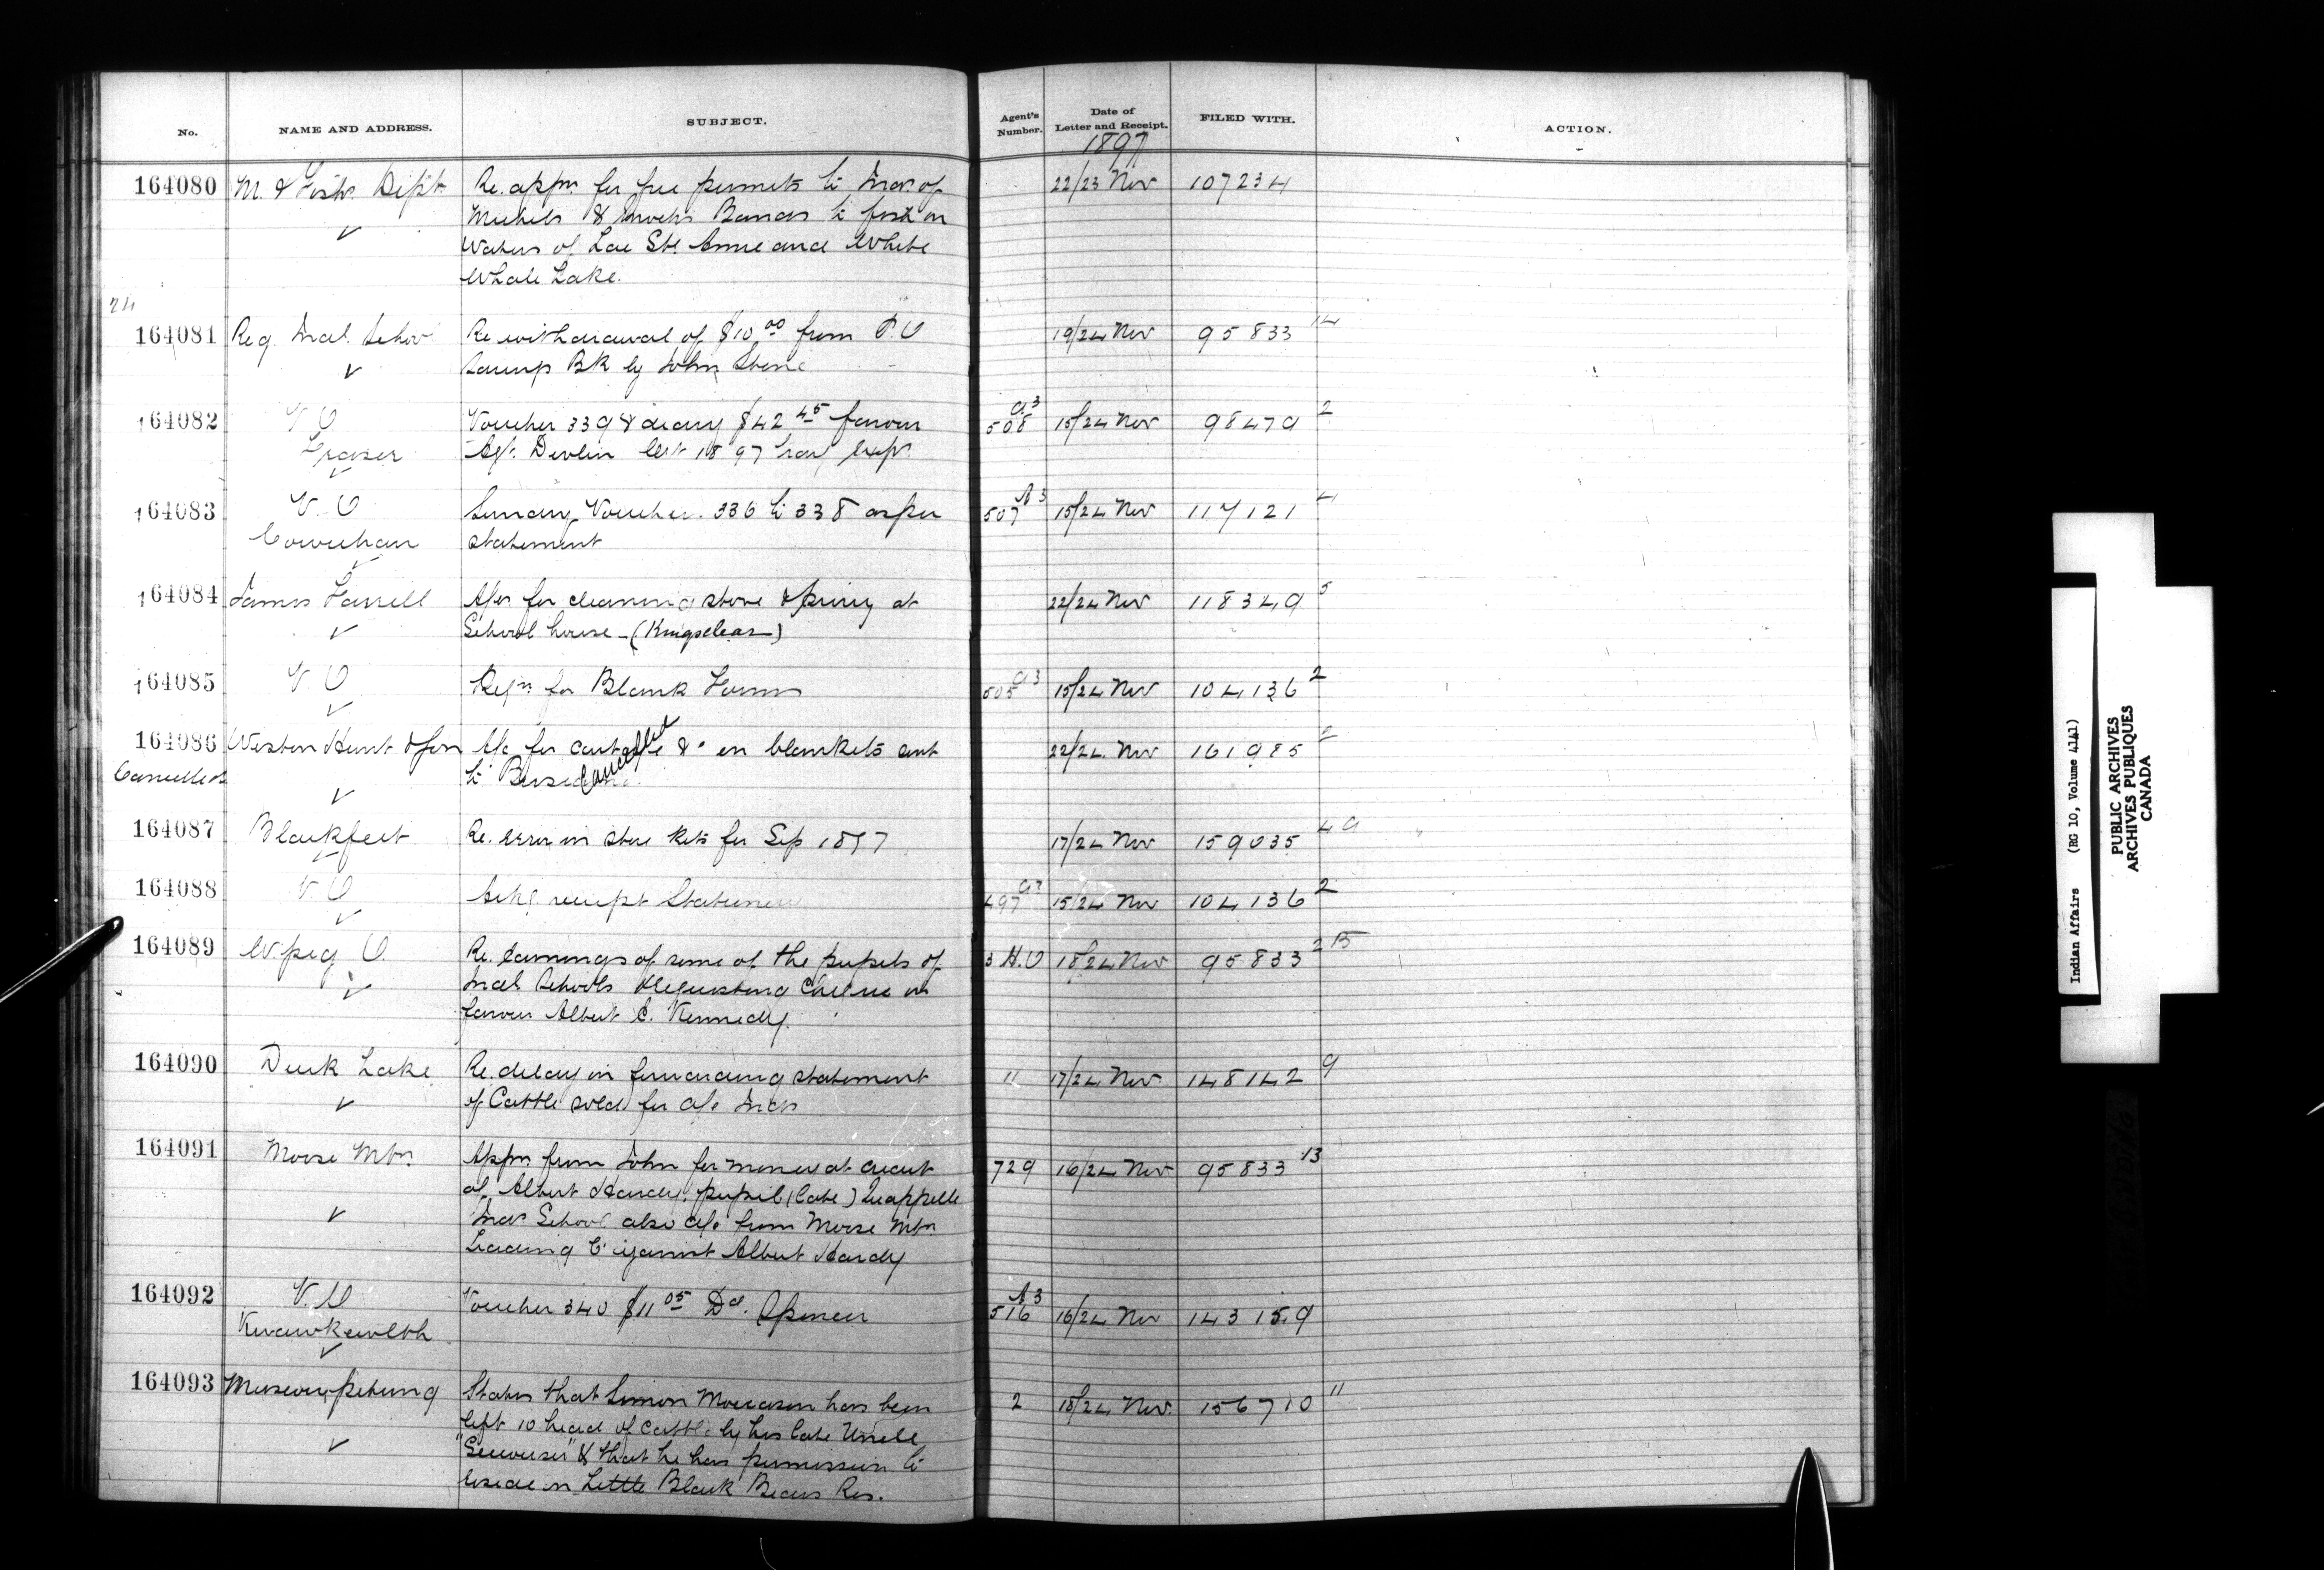 No. NAME AND ADDRESS. SUBJECT. Agent's Number. Date of Letter and Receipt. FILED WITH. ACTION.
1897
164080 M. & Fish. Dept. Re. appn. for free permits to Inds. of 22/23 Nov 107234
Michels & Enochs Bands to fish in
Waters of Lac Ste. Anne and White
Whale Lake.
24
164081 Reg. Indl. School Re withdrawal of $10.00 from P.O 19/24 Nov 95833 14
Savings Bk by John Stone
164082 V O Voucher 339 & diary $42.45 favour 508 a3 15/24 Nov 98479 2
Fraser Agt. Devlin Oct 1897 trav. exps.
164083 V. O Sundry Voucher. 336 to 338 as per 507 A3 15/24 Nov 117121 4
Cowichan statement
164084 James Farrell A/cs for cleaning stove & privy at 22/24 Nov 118349 5
School house - (Kingsclear)
164085 V O Reqn. for Blank Forms 505 a3 15/24 Nov 104136 2
164086 Weston Hunt & Son A/c for cartage &c on blankets sent 22/24 Nov 161985 2
Cancelled to Cancelled
164087 Blackfeet Re. error in store rets for Sep 1897 17/24 Nov 159035 49
164088 V. O Ackg receipt Stationery 497 a3 15/24 Nov 104136 2
164089 W.peg O. Re. earnings of some of the pupils of 3 H.O 18/24 Nov 95833 2 B
Indl Schools & requesting Cheque in
favour Albert E. Kennedy.
164090 Duck Lake Re. delay in forwarding statement 11 17/24 Nov. 148142 9
of Cattle sold for a/c Inds
164091 Moose Mtn. Appn. from John for money at credit 729 16/24 Nov 95833 13
of Albert Hardy, pupil (late) Quappelle
Ind. School also a/c from Moose Mtn.
Trading Co against Albert Hardy
164092 V. O Voucher 340 $11.05 Dd. Spencer 516 A3 16/24 Nov 143159
Kwawkewlth
164093 Muscowpetung States that Simon has been 2 18/24 Nov. 156710 11
left 10 head of Cattle by his late Uncle
& that he has permission to
reside on Little Black Bears Res.
Indian Affairs (RG 10, Volume 4141)
PUBLIC ARCHIVES
ARCHIVES PUBLIQUES
CANADA